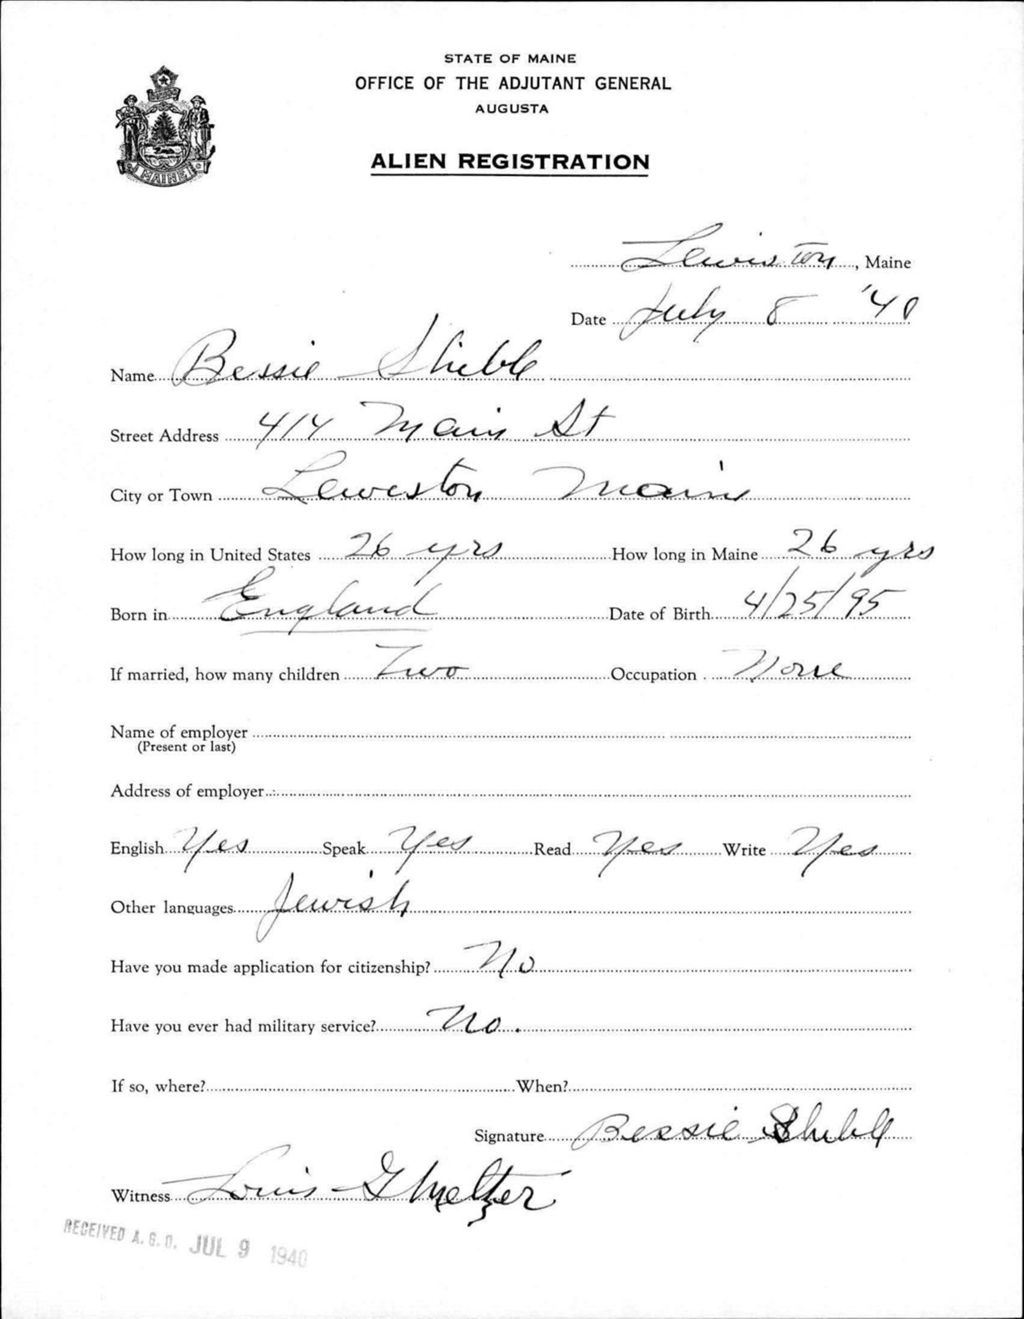 STATE OF MAINE
OFFICE OF THE ADJUTANT GENERAL
AUGUSTA
ALIEN REGISTRATION
MAINE
Lewiston, Maine
Date July 8 '40
Name Bessie Shible
Street Address 414 Main St
City or Town Leweston Maine
How long in United States 26 yrs How long in Maine 26 yrs
Born in England Date of Birth 4/25/95
If married, how many children Two Occupation None
Name of employer
(Present or last)
Address of employer
English Yes Speak Yes Read Yes Write Yes
Other languages Jewish
Have you made application for citizenship? No
Have you ever had military service? No.
If so, where? When?
Signature Bessie Shible
Witness Louis
RECEIVED A. G. O. JUL 9 1940